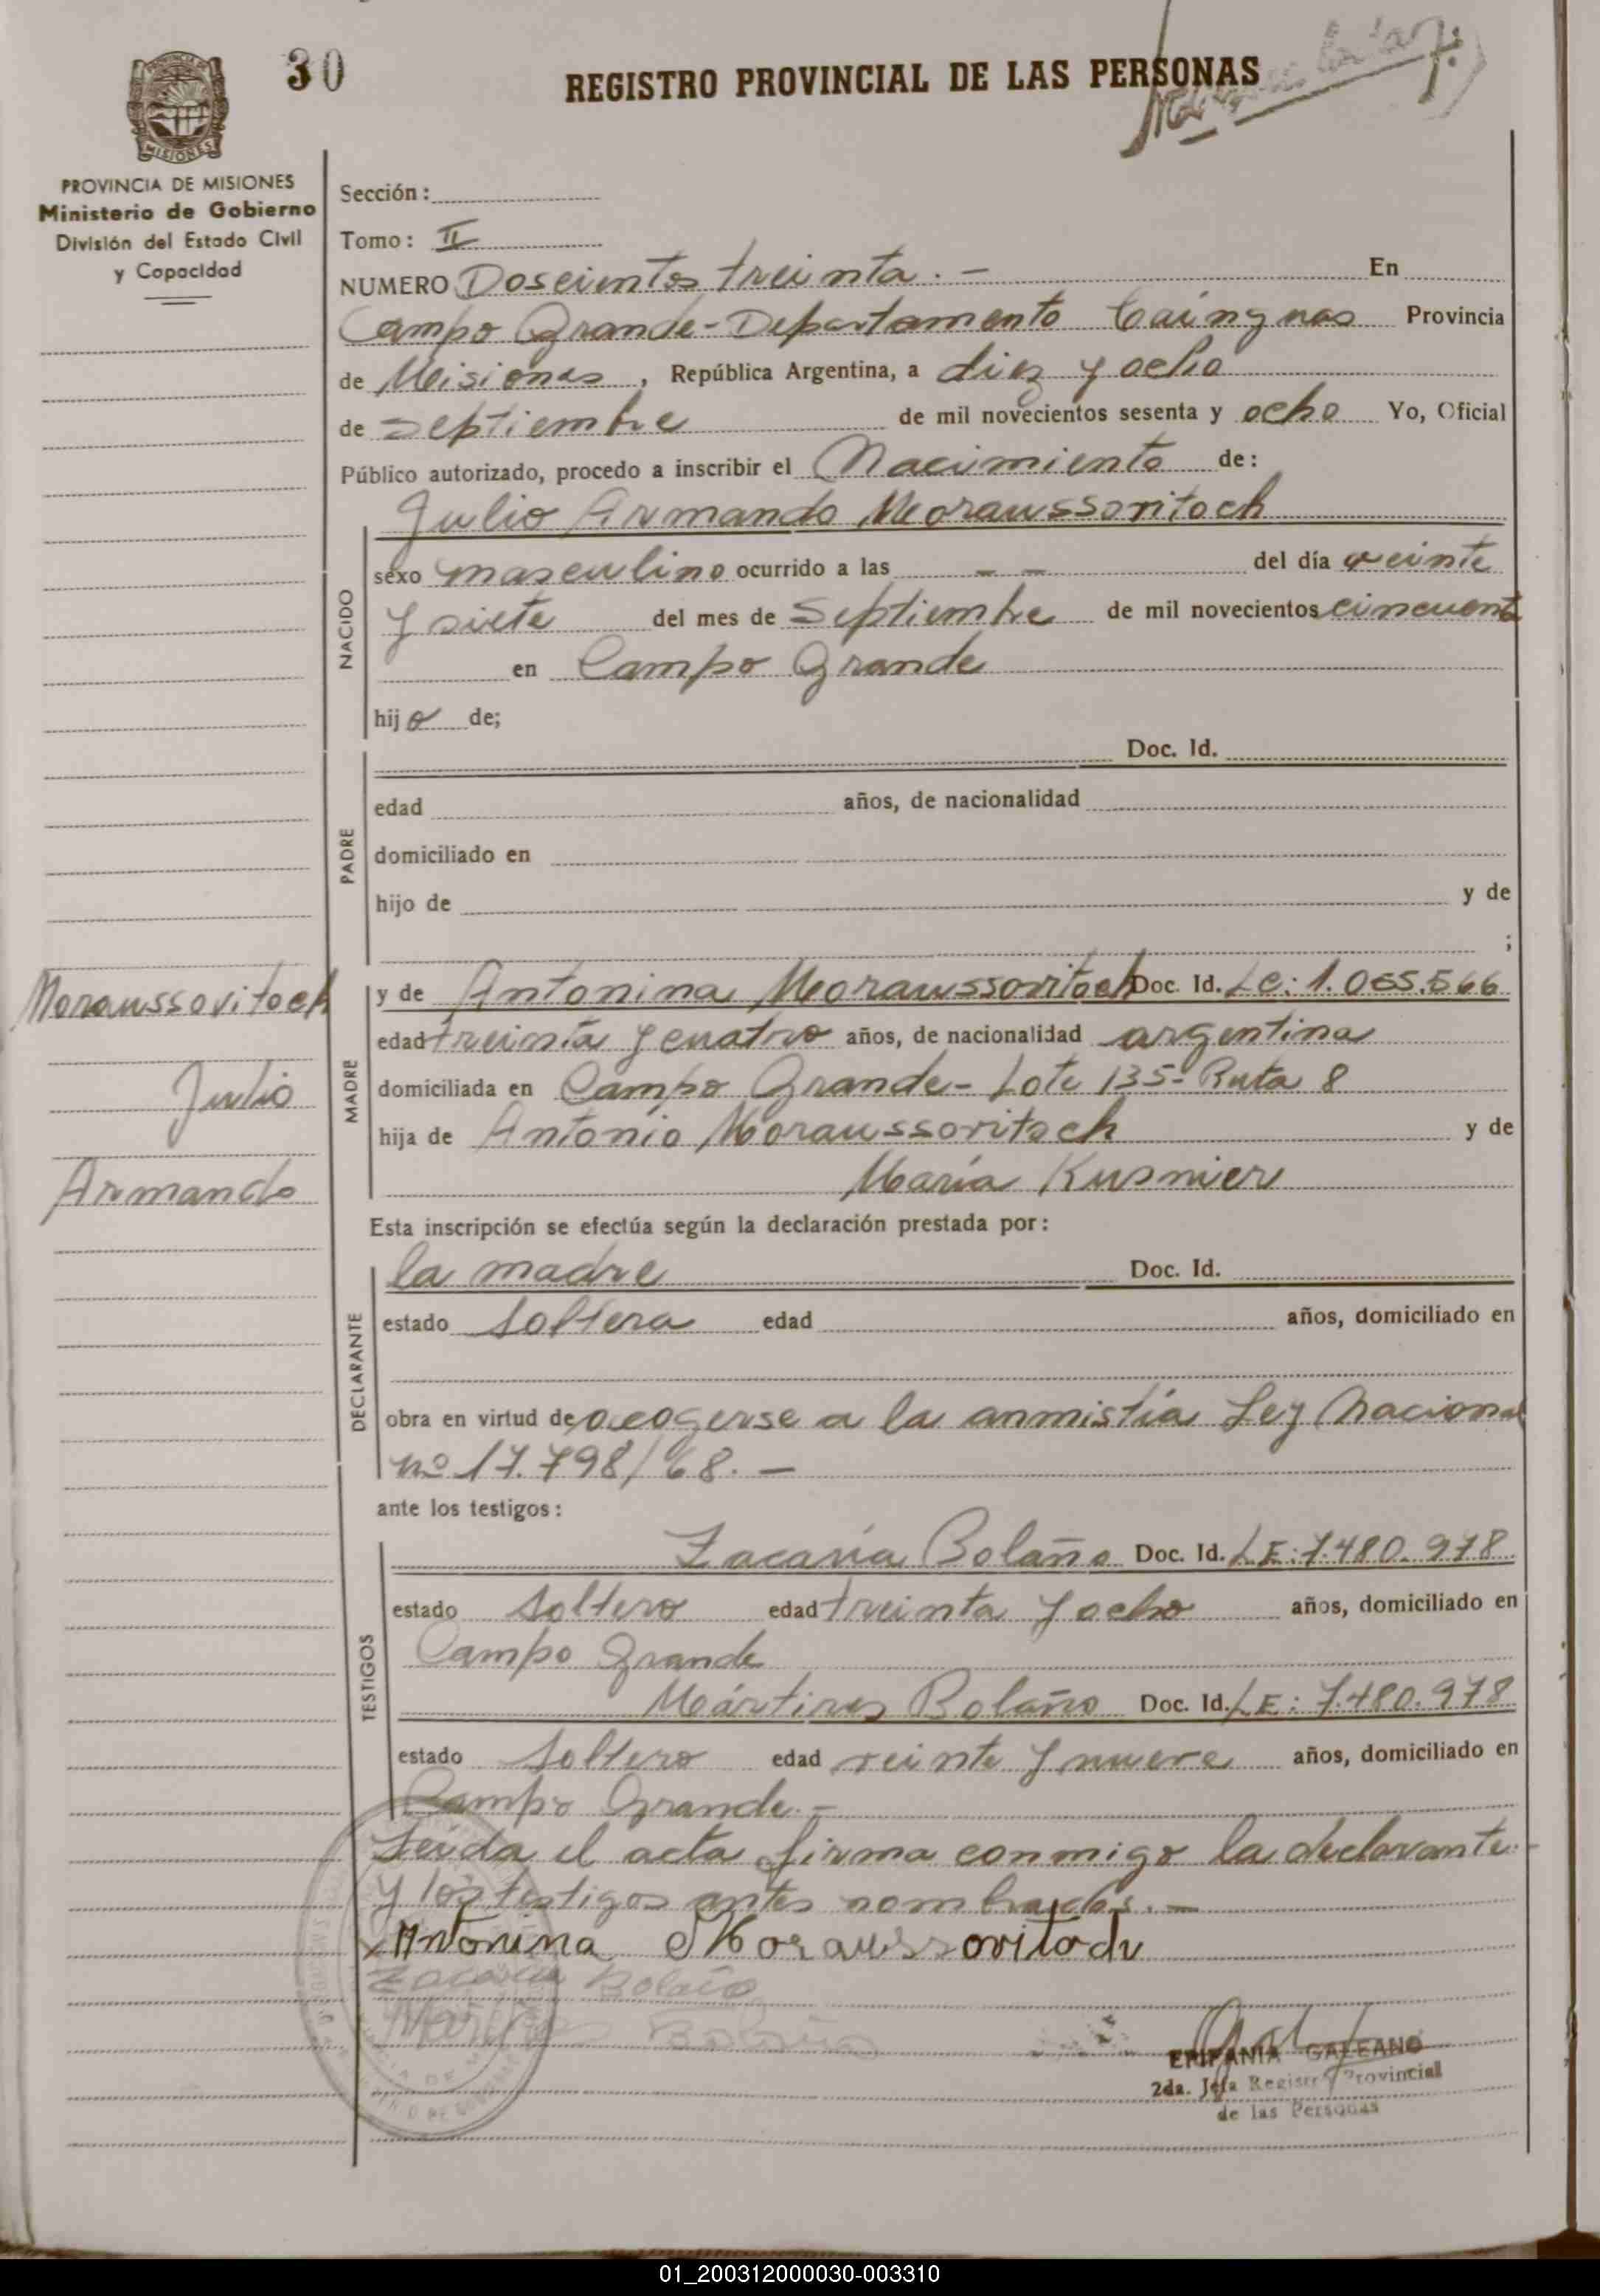 30
REGISTRO PROVINCIAL DE LAS PERSONAS
MISIONES
PROVINCIA DE MISIONES
Ministerio de Gobierno
División del Estado Civil
y Capacidad
Sección:
Tomo: II
NUMERO Doscientos treinta. - En
Campo Grande - Departamento Cainguas Provincia
de Misiones, República Argentina, a diez y ocho
de Septiembre de mil novecientos sesenta y ocho Yo, Oficial
Público autorizado, procedo a inscribir el Nacimiento de:
Julio Armando Moraussovitoch
NACIDO
sexo masculino ocurrido a las - - del día veinte
y siete del mes de Septiembre de mil novecientos cincuenta
en Campo Grande
hijo de;
PADRE
Doc. Id.
edad años, de nacionalidad
domiciliado en
hijo de y de
;
Moraussovitoch
Julio
Armando
MADRE
y de Antonina Moraussovitoch Doc. Id. LC: 1.065.566
edad treinta y cuatro años, de nacionalidad argentina
domiciliada en Campo Grande - Lote 135 - Ruta 8
hija de Antonio Moraussovitoch y de
María Kusnier
Esta inscripción se efectúa según la declaración prestada por:
DECLARANTE
la madre Doc. Id.
estado soltera edad años, domiciliado en
obra en virtud de acogerse a la anmistía Ley Nacional
nº 17.798/68. -
ante los testigos:
TESTIGOS
Zacaría Bolaño Doc. Id. LE: 7.480.978
estado soltero edad treinta y ocho años, domiciliado en
Campo Grande
Mártires Bolaño Doc. Id. LE: 7.480.978
estado soltero edad veinte y nueve años, domiciliado en
Campo Grande. -
Leída el acta firma conmigo la declarante
y los testigos antes nombrados. -
Antonina Moraussovitoch
Zacaria Bolaño
Martires Bolaño
EPIFANIA GALEANO
2da. Jefa Registro Provincial
de las Personas
01_200312000030-003310